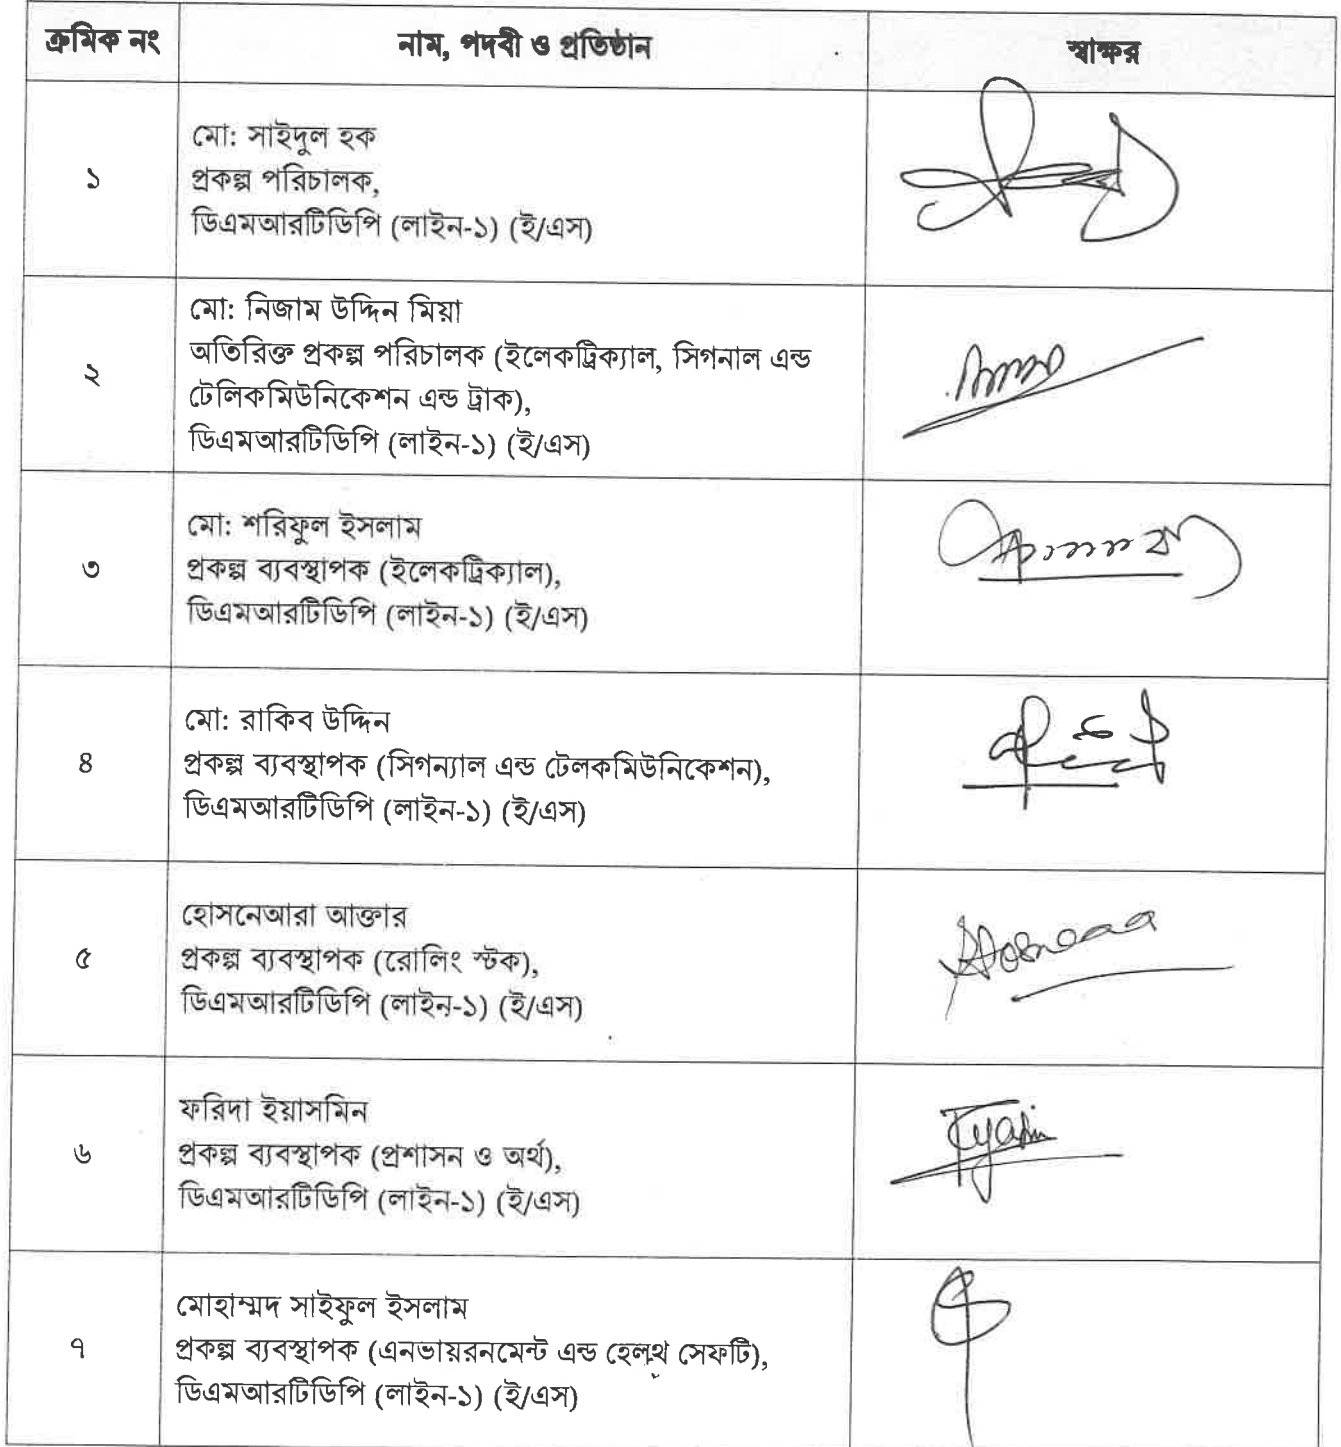 ক্রমিক নং নাম, পদবী ও প্রতিষ্ঠান স্বাক্ষর
মো: সাইদুল হক
১ প্রকল্প পরিচালক,
ডিএমআরটিডিপি (লাইন-১) (ই/এস)
মো: নিজাম উদ্দিন মিয়া
অতিরিক্ত প্রকল্প পরিচালক (ইলেকট্রিক্যাল, সিগনাল এন্ড
২ টেলিকমিউনিকেশন এন্ড ট্রাক),
ডিএমআরটিডিপি (লাইন-১) (ই/এস)
মো: শরিফুল ইসলাম
৩ প্রকল্প ব্যবস্থাপক (ইলেকট্রিক্যাল),
ডিএমআরটিডিপি (লাইন-১) (ই/এস)
মো: রাকিব উদ্দিন
৪ প্রকল্প ব্যবস্থাপক (সিগন্যাল এন্ড টেলকমিউনিকেশন),
ডিএমআরটিডিপি (লাইন-১) (ই/এস)
হোসনেআরা আক্তার
৫ প্রকল্প ব্যবস্থাপক (রোলিং স্টক),
ডিএমআরটিডিপি (লাইন-১) (ই/এস)
ফরিদা ইয়াসমিন
৬ প্রকল্প ব্যবস্থাপক (প্রশাসন ও অর্থ),
ডিএমআরটিডিপি (লাইন-১) (ই/এস)
মোহাম্মদ সাইফুল ইসলাম
৭ প্রকল্প ব্যবস্থাপক (এনভায়রনমেন্ট এন্ড হেলথ সেফটি),
ডিএমআরটিডিপি (লাইন-১) (ই/এস)